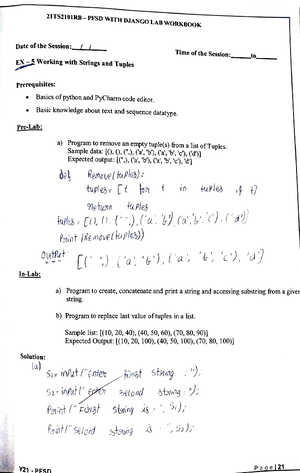 21TS2101RB – PFSD WITH DJANGO LAB WORKBOOK
Date of the Session: / /
Time of the Session: to
EX – 5 Working with Strings and Tuples
Prerequisites:
• Basics of python and PyCharm code editor.
• Basic knowledge about text and sequence datatype.
Pre-Lab:
a) Program to remove an empty tuple(s) from a list of Tuples.
Sample data: [(), (), ('',), ('a', 'b'), ('a', 'b', 'c'), ('d')]
Expected output: [('',), ('a', 'b'), ('a', 'b', 'c'), 'd']
def Remove(tuples):
tuples = [t for t in tuples if t]
return tuples
tuples = [(), (), ('',), ('a', 'b'), ('a', 'b', 'c'), ('d')]
Print (Remove(tuples))
Output
[('',), ('a', 'b'), ('a', 'b', 'c'), 'd']
In-Lab:
a) Program to create, concatenate and print a string and accessing substring from a given
string.
b) Program to replace last value of tuples in a list.
Sample list: [(10, 20, 40), (40, 50, 60), (70, 80, 90)]
Expected Output: [(10, 20, 100), (40, 50, 100), (70, 80, 100)]
Solution:
(a)
S1 = input("Enter first string : ");
S2 = input(" enter second string : ");
Print (" First string is : ", S1);
Print (" Second string is : ", S2);
Y21 - PFSD
Page | 21